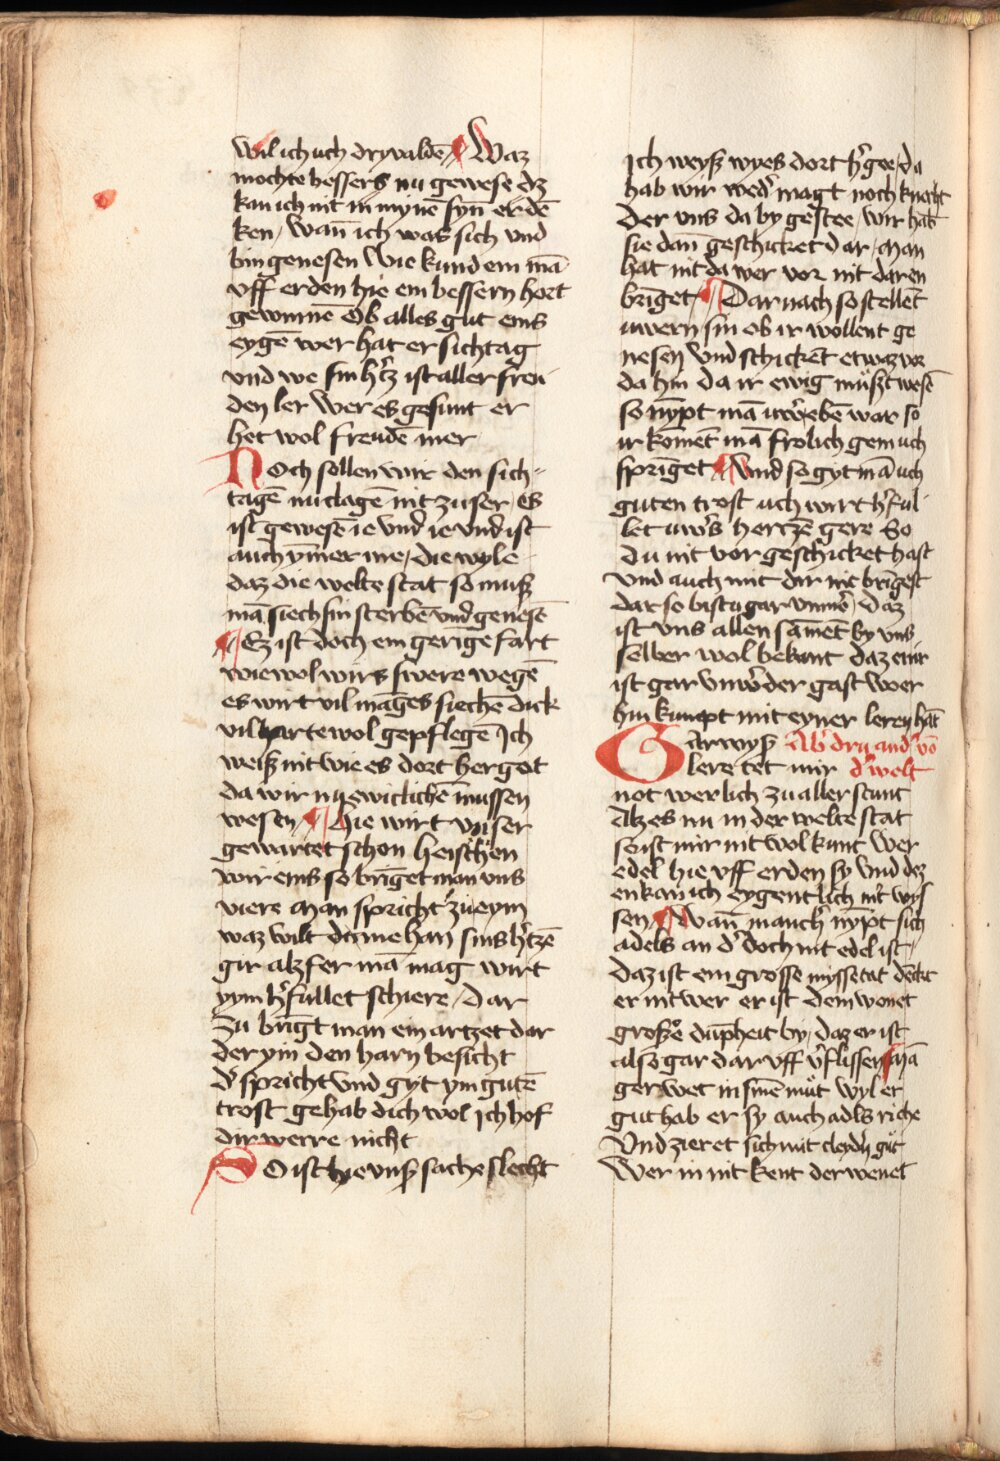 wil ich uch dryvaldē Waz
mochte bessers nu gewese dz
kan ich nit in mynē syn̄ erdē
ken / wan̄ ich was sich vnd
bin genesen Wie kund em mā
vff erden hie ein bessern hort
gewinnē Ob alles gut eins
eygē wer hat er sichtag
vnd we sin h'tz ist aller freu
den ler Wer es gesunt er
het wol freudē mer
Noch sollen wir den sich
tagē nit clagē nit zu ser Es
ist gewesē ie vnd ie vnd ist
auch ȳmer me / die wyle
daz die welte stat so muß
mā siech sin sterbē vnd genesē
Ez ist doch ein gerīge fart
wie wol wirs swere wegē
es wirt vil māges siechē dick
vil harte wol gepflegē Ich
weiß nit wie es dort her got
da wir nu ewiclichē mussen
wesen Hie wirt vnser
gewartet schon heischen
wir eins so brīget man vns
viere Man spricht zu eym
waz wilt du me han sins h'tzē
gir alz fer mā mag wirt
yym h'fullet schiere / dar
zu brīgt man ein artzet dar
der yin den harn besicht
d' spricht vnd gyt ym gutē
trost gehab dich wol Ich hof
dir werre nicht
So ist hie vnß sache slecht
Ich weyß wyes dort h'gee / da
hab wir wed' magt noch knecht
der vns da by gestee / wir habē
sie dan̄ geschicket dar / Man
hat nit da wer vor nit daren
brīget / Dar nach so stellēt
uwern sin ob ir wollent ge
nesen Vnd schickēt etwaz vor
da hin da ir ewig mußt wesē
so nȳpt mā uw' ebē war so
ir komēt mā frolich gem uch
sprīget Vnd so gyt mā uch
guten trost uch wirt h'ful
let uw's hertzē gere So
du nit vor geschicket hast
vnd auch mit dir nit brīgest
dar so bistu gar vnm'e / daz
ist vns allen sāmēt by vns
selber wol bekant daz einr
ist gar vnw'der gast wer
hin kumpt mit eyner leren hāt
Garwyß Ab' dru and' vō
lere tet mir d' welt
not werlich zu aller stunt
Alz es nu in der welte stat
so ist mir nit wol kunt wer
edel hie vff erden sy Vnd dez
enkan ich eygentlich nit wys
sen Wan̄ manch' nȳpt sich
adels an d' doch nit edel ist
daz ist ein grosse myssetat
er nit wer er ist dem wonet
große dūpheit by / daz er ist
also gar dar vff v'flissen
gerwet in sinē mut wyl er
gut hab er sy auch adls riche
Vnd zieret sich mit cleydn gut
Wer in nit kent der wenet